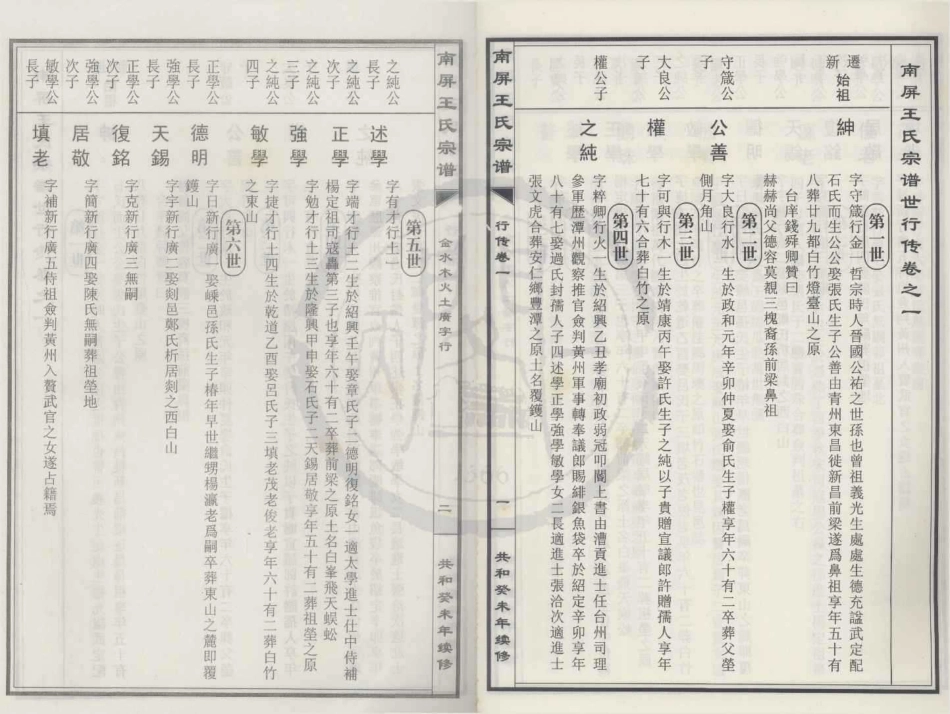 南屏王氏宗谱世行传卷之一
第一世
遷新始祖
紳
字守箴行金一哲宗時人晉國公祐之世孫也曾祖義光生處處生德充諡武定配
石氏而生公公娶張氏生子公善由青州東昌徙新昌前梁遂爲鼻祖享年五十有
八葬廿九都白竹燈臺山之原
台庠錢舜卿贊曰
赫赫尚父德容莫覩三槐裔孫前梁鼻祖
第二世
守箴公子
公善
字大良行水一生於政和元年辛卯仲夏娶俞氏生子權享年六十有二卒葬父塋
側月角山
第三世
大良公子
權
字可與行木一生於靖康丙午娶許氏生子之純以子貴贈宣議郎許贈孺人享年
七十有六合葬白竹之原
第四世
權公子
之純
字粹卿行火一生於紹興乙丑孝廟初政弱冠叩閽上書由漕貢進士任台州司理
參軍歷潭州觀察推官僉判黃州軍事轉奉議郎賜緋銀魚袋卒於紹定辛卯享年
八十有七娶過氏封孺人子四述學正學強學敏學女二長適進士張洽次適進士
張文虎合葬安仁鄉豐潭之原土名覆鑊山
南屏王氏宗谱
行传卷一
一
共和癸未年续修
南屏王氏宗谱
金水木火土廣字行
二
共和癸未年续修
第五世
之純公長子
述學
字有才行土一
之純公次子
正學
字端才行土二生於紹興壬午娶章氏子二德明復銘女一適太學進士仕中侍補
楊定祖司寇轟第三子也享年六十有二卒葬前梁之原土名白峯飛天蜈蚣
之純公三子
強學
字勉才行土三生於隆興甲申娶石氏子二天錫居敬享年五十有二葬祖塋之原
之純公四子
敏學
字捷才行土四生於乾道乙酉娶呂氏子三填老茂老俊老享年六十有二葬白竹
之東山
第六世
正學公長子
德明
字日新行廣一娶嵊邑孫氏生子椿年早世繼甥楊瀛老爲嗣卒葬東山之麓即覆
鑊山
強學公長子
天錫
字宇新行廣二娶剡邑鄭氏析居剡之西白山
正學公次子
復銘
字克新行廣三無嗣
強學公次子
居敬
字簡新行廣四娶陳氏無嗣葬祖塋地
敏學公長子
填老
字補新行廣五侍祖僉判黃州入贅武官之女遂占籍焉